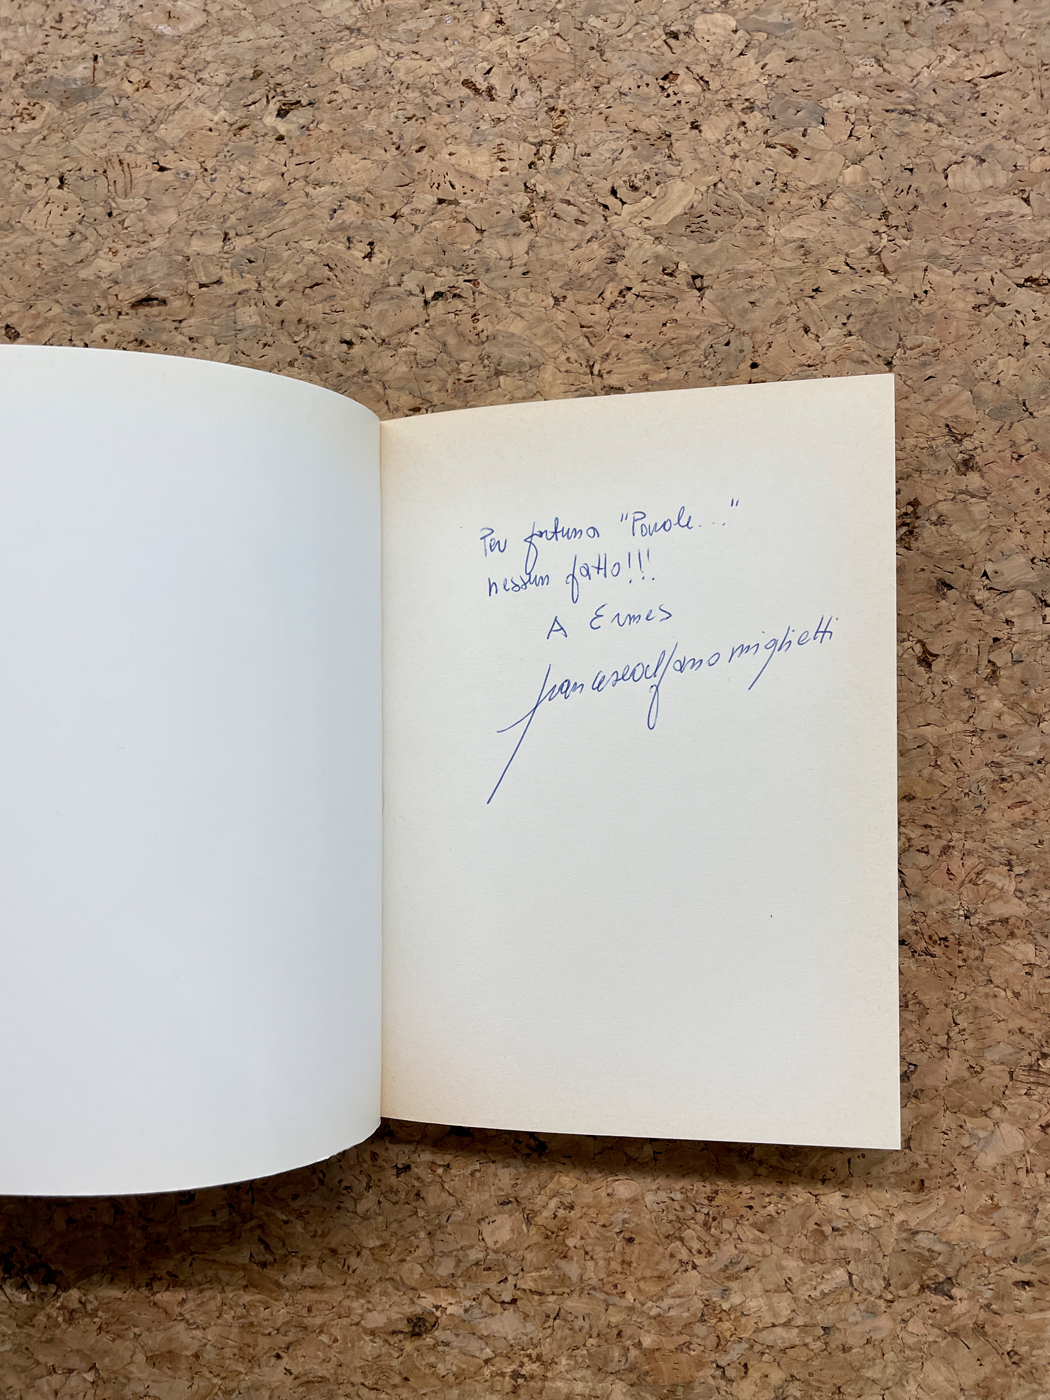 Per fortuna "Parole..."
nessun fatto!!!
A Ermes
francescoalfano miglietti